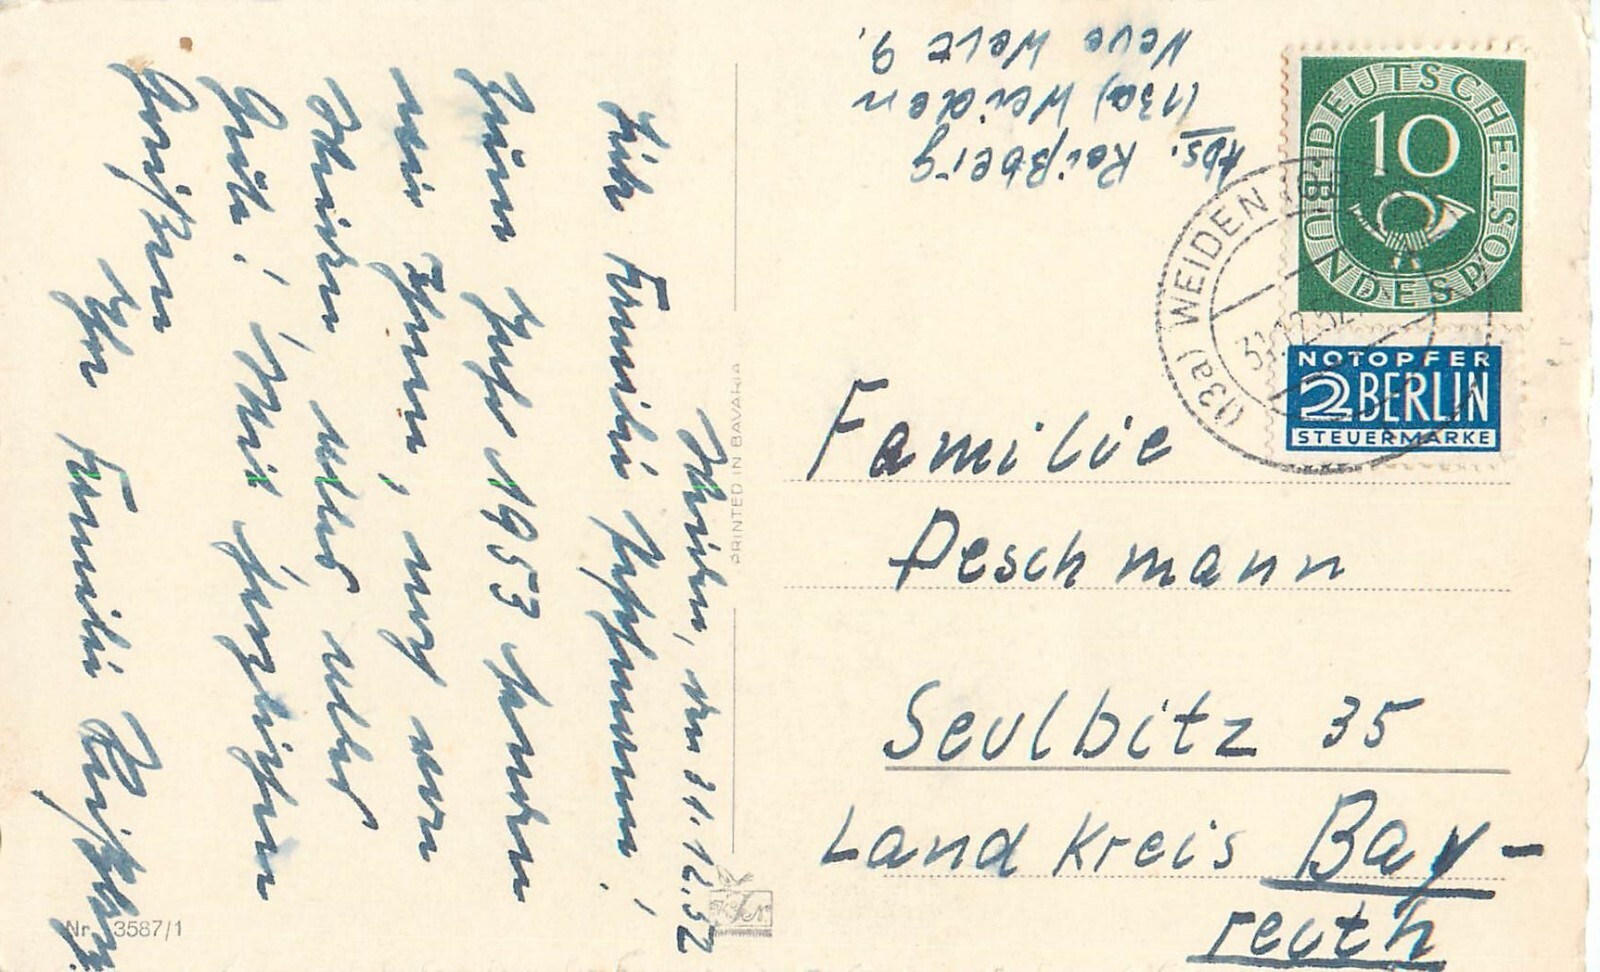 Weiden, den 31.12.52
Liebe Familie Peschmann!
Zum Jahr 1953 senden
wir Ihnen, auch von
Weiden, alles alles
Gute! Mit herzlichen
Grüßen
Ihre Familie Reißberg.
Abs. Reißberg
(13a) Weiden
Neue Welt 9.
DEUTSCHE BUNDESPOST
10
(13a) WEIDEN
31.12.52
NOTOPFER
2 BERLIN
STEUERMARKE
Familie
Peschmann
Seulbitz 35
Landkreis Bay-
reuth
PRINTED IN BAVARIA
Nr. 3587/1